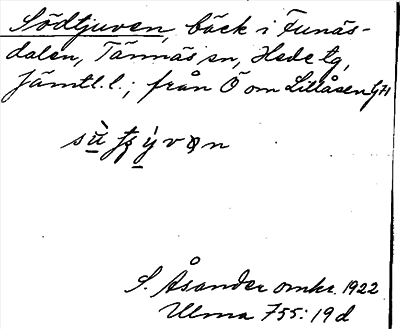 Södtjuven, bäck i Funäs-
dalen, Tännäs sn, Hede tg,
Jämtl. l.; från Ö om Lillåsen
S. Åsander omkr. 1922
Ulma 755:19d